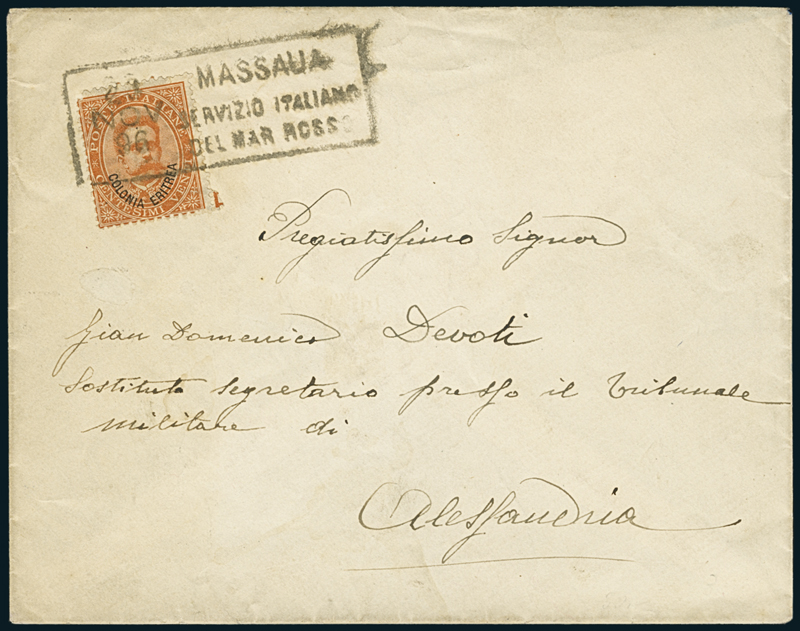 MASSAUA
SERVIZIO ITALIANO
DEL MAR ROSSO
NOV
96
POSTE ITALIANE
COLONIA ERITREA
CENTESIMI VENTI
Pregiatissimo Signor
Gian Domenico Devoti
Sostituto segretario presso il Tribunale
militare di
Alessandria